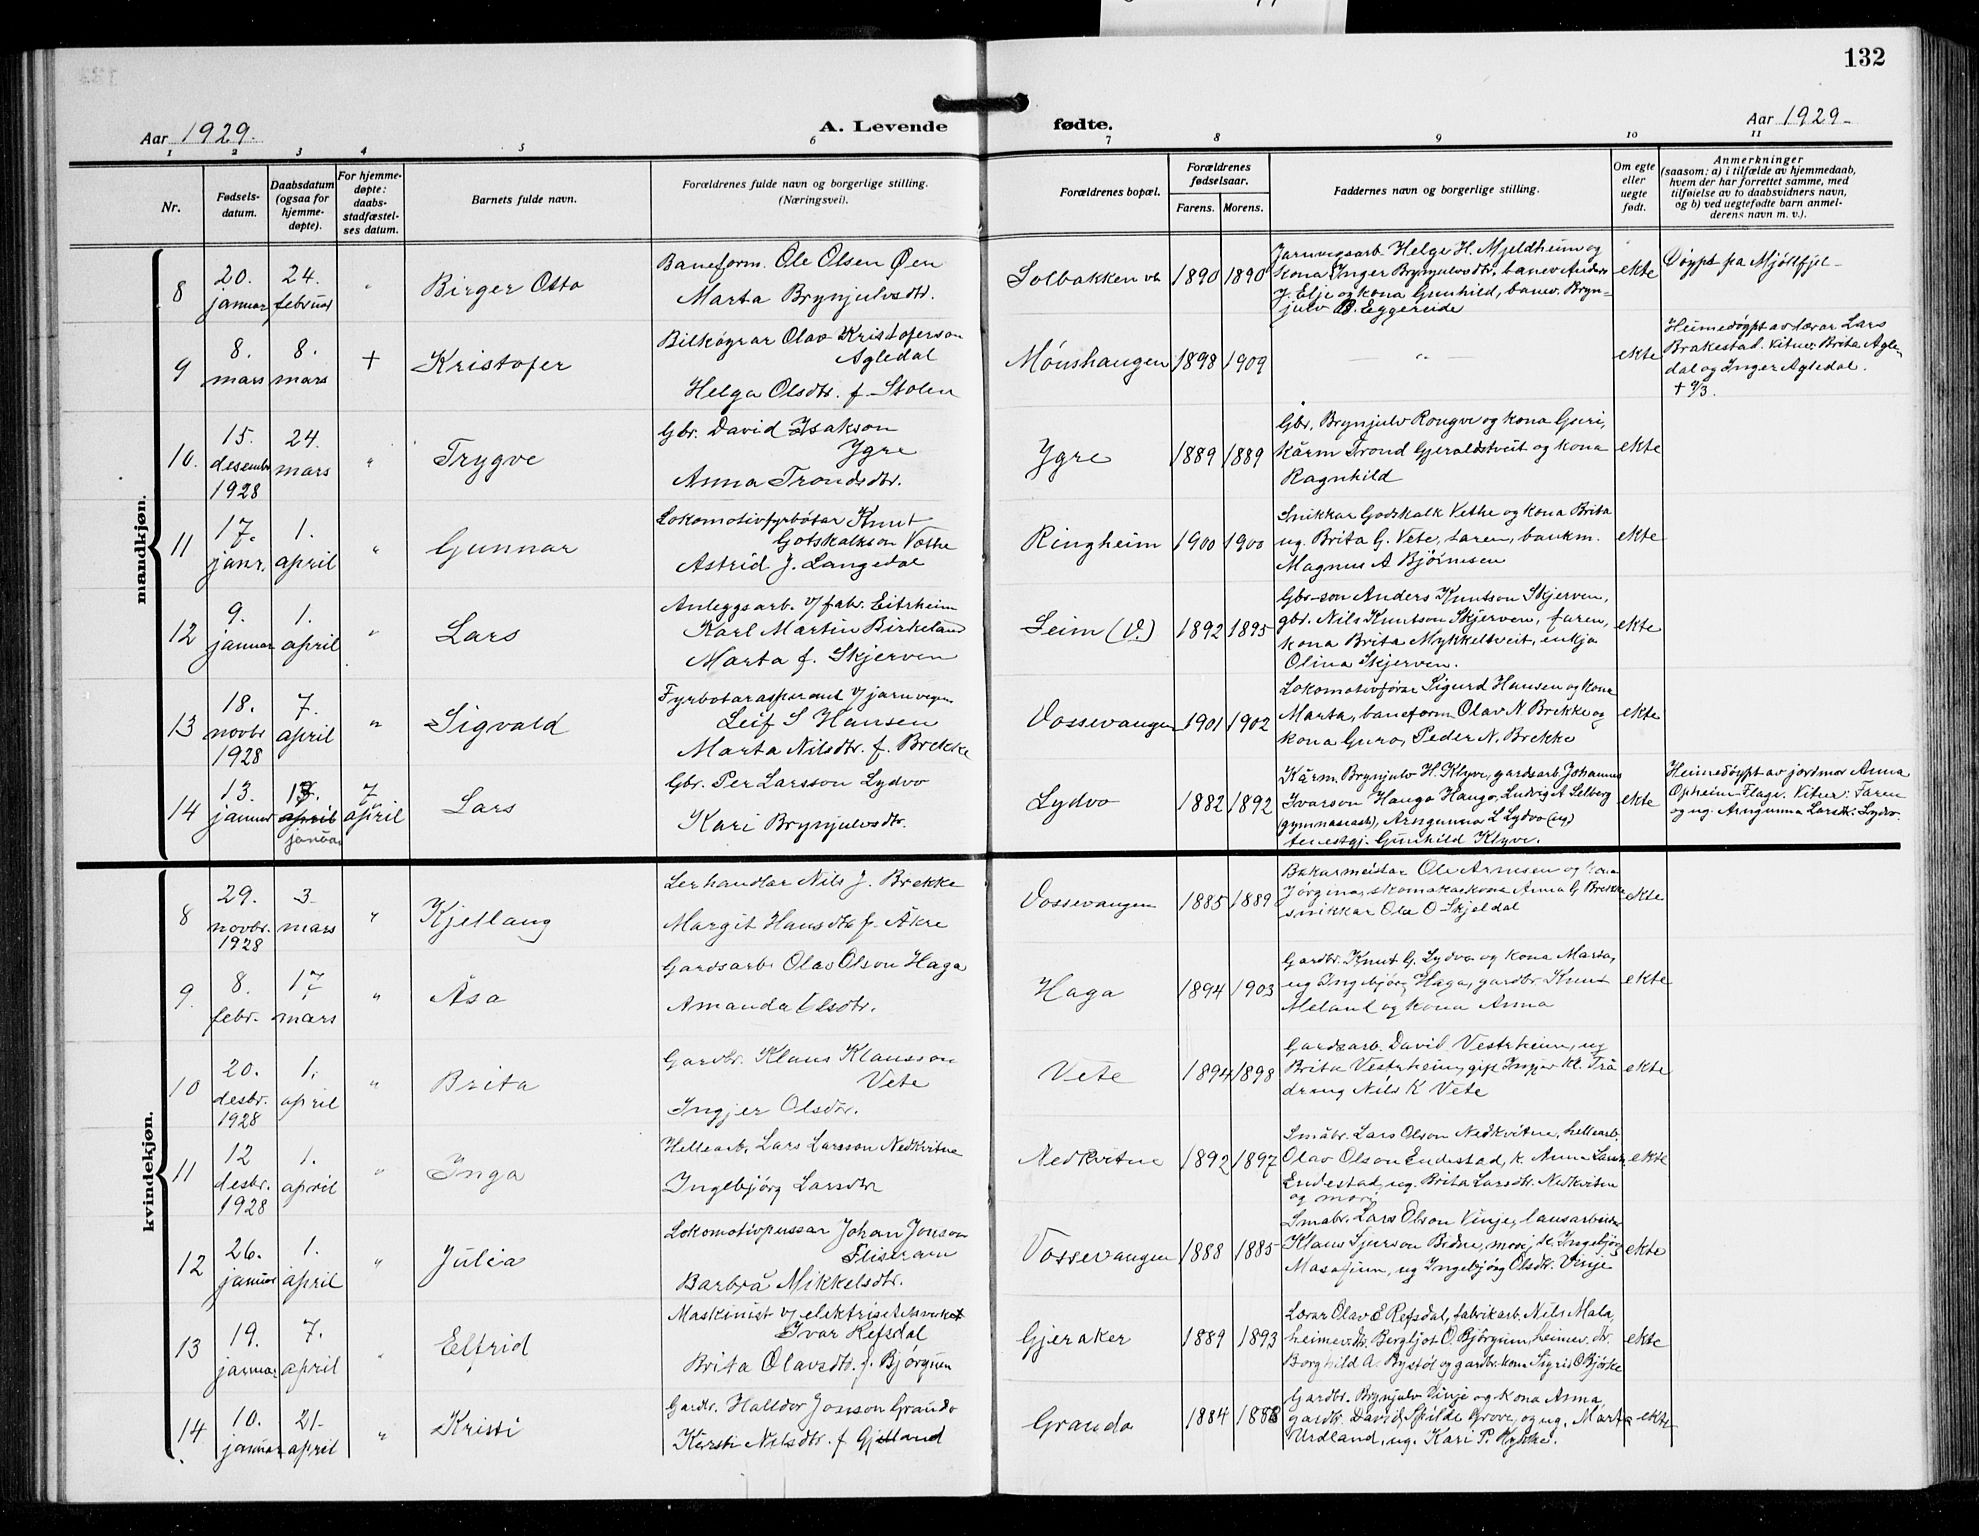 132
Aar 1929.
A. Levende fødte.
Aar 1929
1 2 3 4 5 6 7 8 9 10 11
Nr.
Fødsels-
datum.
Daabsdatum
(ogsaa for
hjemme-
døpte).
For hjemme-
døpte:
daabs-
stadfæstel-
ses datum.
Barnets fulde navn.
Forældrenes fulde navn og borgerlige stilling.
(Næringsvei).
Forældrenes bopæl.
Forældrenes
fødselsaar.
Farens. Morens.
Faddernes navn og borgerlige stilling.
Om egte
eller
uegte
født.
Anmerkninger
(saasom: a) i tilfælde av hjemmedaab,
hvem der har forrettet samme, med
tilføielse av to daabsvidners navn,
og b) ved uegtefødte barn anmel-
derens navn m. v.).
mandkjøn.
8
20.
januar
24.
februar
"
Birger Otto
Baneform. Ole Olsen Øen
Marta Brynjulvsdtr.
Solbakken
1890 1890
Jarnvegsarb. Helge H. Mjeldheim og
kona Inger Brynjulvsdtr, banev. Anders
J. Elje og kona Gunhild, banev. Bryn-
julv B. Eggereide
ekte
Døypt på Mjölfjel
9
8.
mars
8.
mars
+
Kristofer
Bilkøyrar Olav Kristoferson
Agledal
Helga Olsdtr. f. Stolen
Mønshaugen
1898 1909
— " —
ekte
Heimedøypt av lærar Lars
Brakestad. Vitner Brita Agle-
dal og Inger Agledal.
+ 9/3.
10.
15.
desembr
1928
24.
mars
"
Trygve
Gbr. David Isakson
Ygre
Anna Trondsdtr.
Ygre
1889 1889
Gbr. Brynjulv Rongve og kona Gyeri,
Kårm Trond Gjeraldstveit og kona
Ragnhild
ekte
11
17.
janr.
1.
april
"
Gunnar
Lokomotivfyrbøtar Knut
Gotskalkson Vethe
Astrid J. Langedal
Ringheim
1900 1900
Snikkar Godskalk Vethe og kona Brita
ug. Brita G. Vete, faren, bankm.
Magnus A Bjørnsen
ekte
12
9.
januar
1.
april
"
Lars
Anleggsarb. v/ fabr. Eitrheim
Karl Martin Birkeland
Marta f. Skjerven
Seim (V.)
1892 1895
Gbr-son Anders Knutson Skjerven,
gbr. Nils Knutson Skjerven, faren,
kona Brita Mykkeltveit, enkja
Olina Skjerven.
ekte
13
18.
novbr
1928
7.
april
"
Sigvald
Fyrbøtaraspirant v/ jarnvegen
Leif S Hansen
Marta Nilsdtr. f. Brekke
Vossevangen
1901 1902
Lokomotivførar Sigurd Hansen og kona
Marta, baneform Olav N. Brekke og
kona Guro, Peder N. Brekke
ekte
14
13.
januar
13.
april
januar
7
april
Lars
Gbr. Per Larsson Lydvo
Kari Brynjulvsdtr.
Lydvo
1882 1892
Kårm. Brynjulv H. Klyve, gardsarb. Johannes
Ivarson Hauga Haugo, Ludvig A Selberg
gymnasiast), Arngunna L Lydvo (ug)
tenestgj. Gunhild Klyve.
ekte
Heimedøypt av jordmor Anna
Opheim Flage. Vitner: Faren
og ug. Arngunna Larsdtr. Lydvo.
kvindekjøn.
8
29.
novbr.
1928
3
mars
"
Kjellaug
Lerhandlar Nils J. Brekke
Margit Hansdtr f. Åkre
Vossevangen
1885 1889
Bakarmeistar Ole Arnesen og kona
Jørgina, skomakarkona Anna G Brekke
snikkar Ola O Skjeldal
ekte
9
8.
febr.
17
mars
"
Åsa
Gardsarb Olav Olson Haga
Amanda Olsdtr.
Haga
1894 1903
Gardbr. Knut G. Lydvo og kona Marta,
ug Ingebjörg Haga, gardbr. Knut
Meland og kona Anna
ekte
10
20.
desbr.
1928
1.
april
"
Brita
Gardbr. Klaus Klausson
Vete
Ingjer Olsdtr.
Vete
1894 1898
Gardsarb. David Vestrheim, ug
Brita Vestrheim, gift Ingjer Kl. Trå
dreng Nils K Vete
ekte
11
12
desbr.
1928
1.
april
"
Inga
Hellearb. Lars Larsson Nedkvitne
Ingebjörg Larsdtr
Nedkvitne
1892 1897
Småbr. Lars Olson Nedkvitne, hellearb.
Olav Olson Endestad, k. Anna Larsdtr
Endestad, ug. Brita Larsdtr. Nedkvitne
og mori
ekte
12
26.
januar
1.
april
"
Julia
Lokomotivpussar Johan Jonson
Fliseram
Barbrå Mikkelsdtr.
Vossevangen
1888 1885
Småbr. Lars Olson Vinje, lausarbeidar
Klaus Sjurson Bidne, mori, k. Ingebjörg
ug Ingebjörg Olsdtr. Vinje
ekte
13
19.
januar
7.
april
"
Elfrid
Maskinist v/ elektrisitetsverket
Ivar Refsdal
Brita Olavsdtr. f. Bjørgum
Gjeraker
1889 1893
Lærar Olav E Refsdal, fabrikarb. Nils Mala,
heimev.dtr. Bergljot O. Bjørgum, heimev. dtr.
Borghild A. Bystøl og gardbr.kona Sigrid O Bjørke
ekte
14
10.
januar
21
april
"
Kristi
Gardbr. Halldor Jonson Grande
Kersti Nilsdtr. f Gjelland
Grando
1884 1888
Gardbr. Brynjulv Vinje og kona Anna,
gardbr. David Spilde Grove, og ug. Marta
Urdland, ug. Kari P. Rykke.
ekte